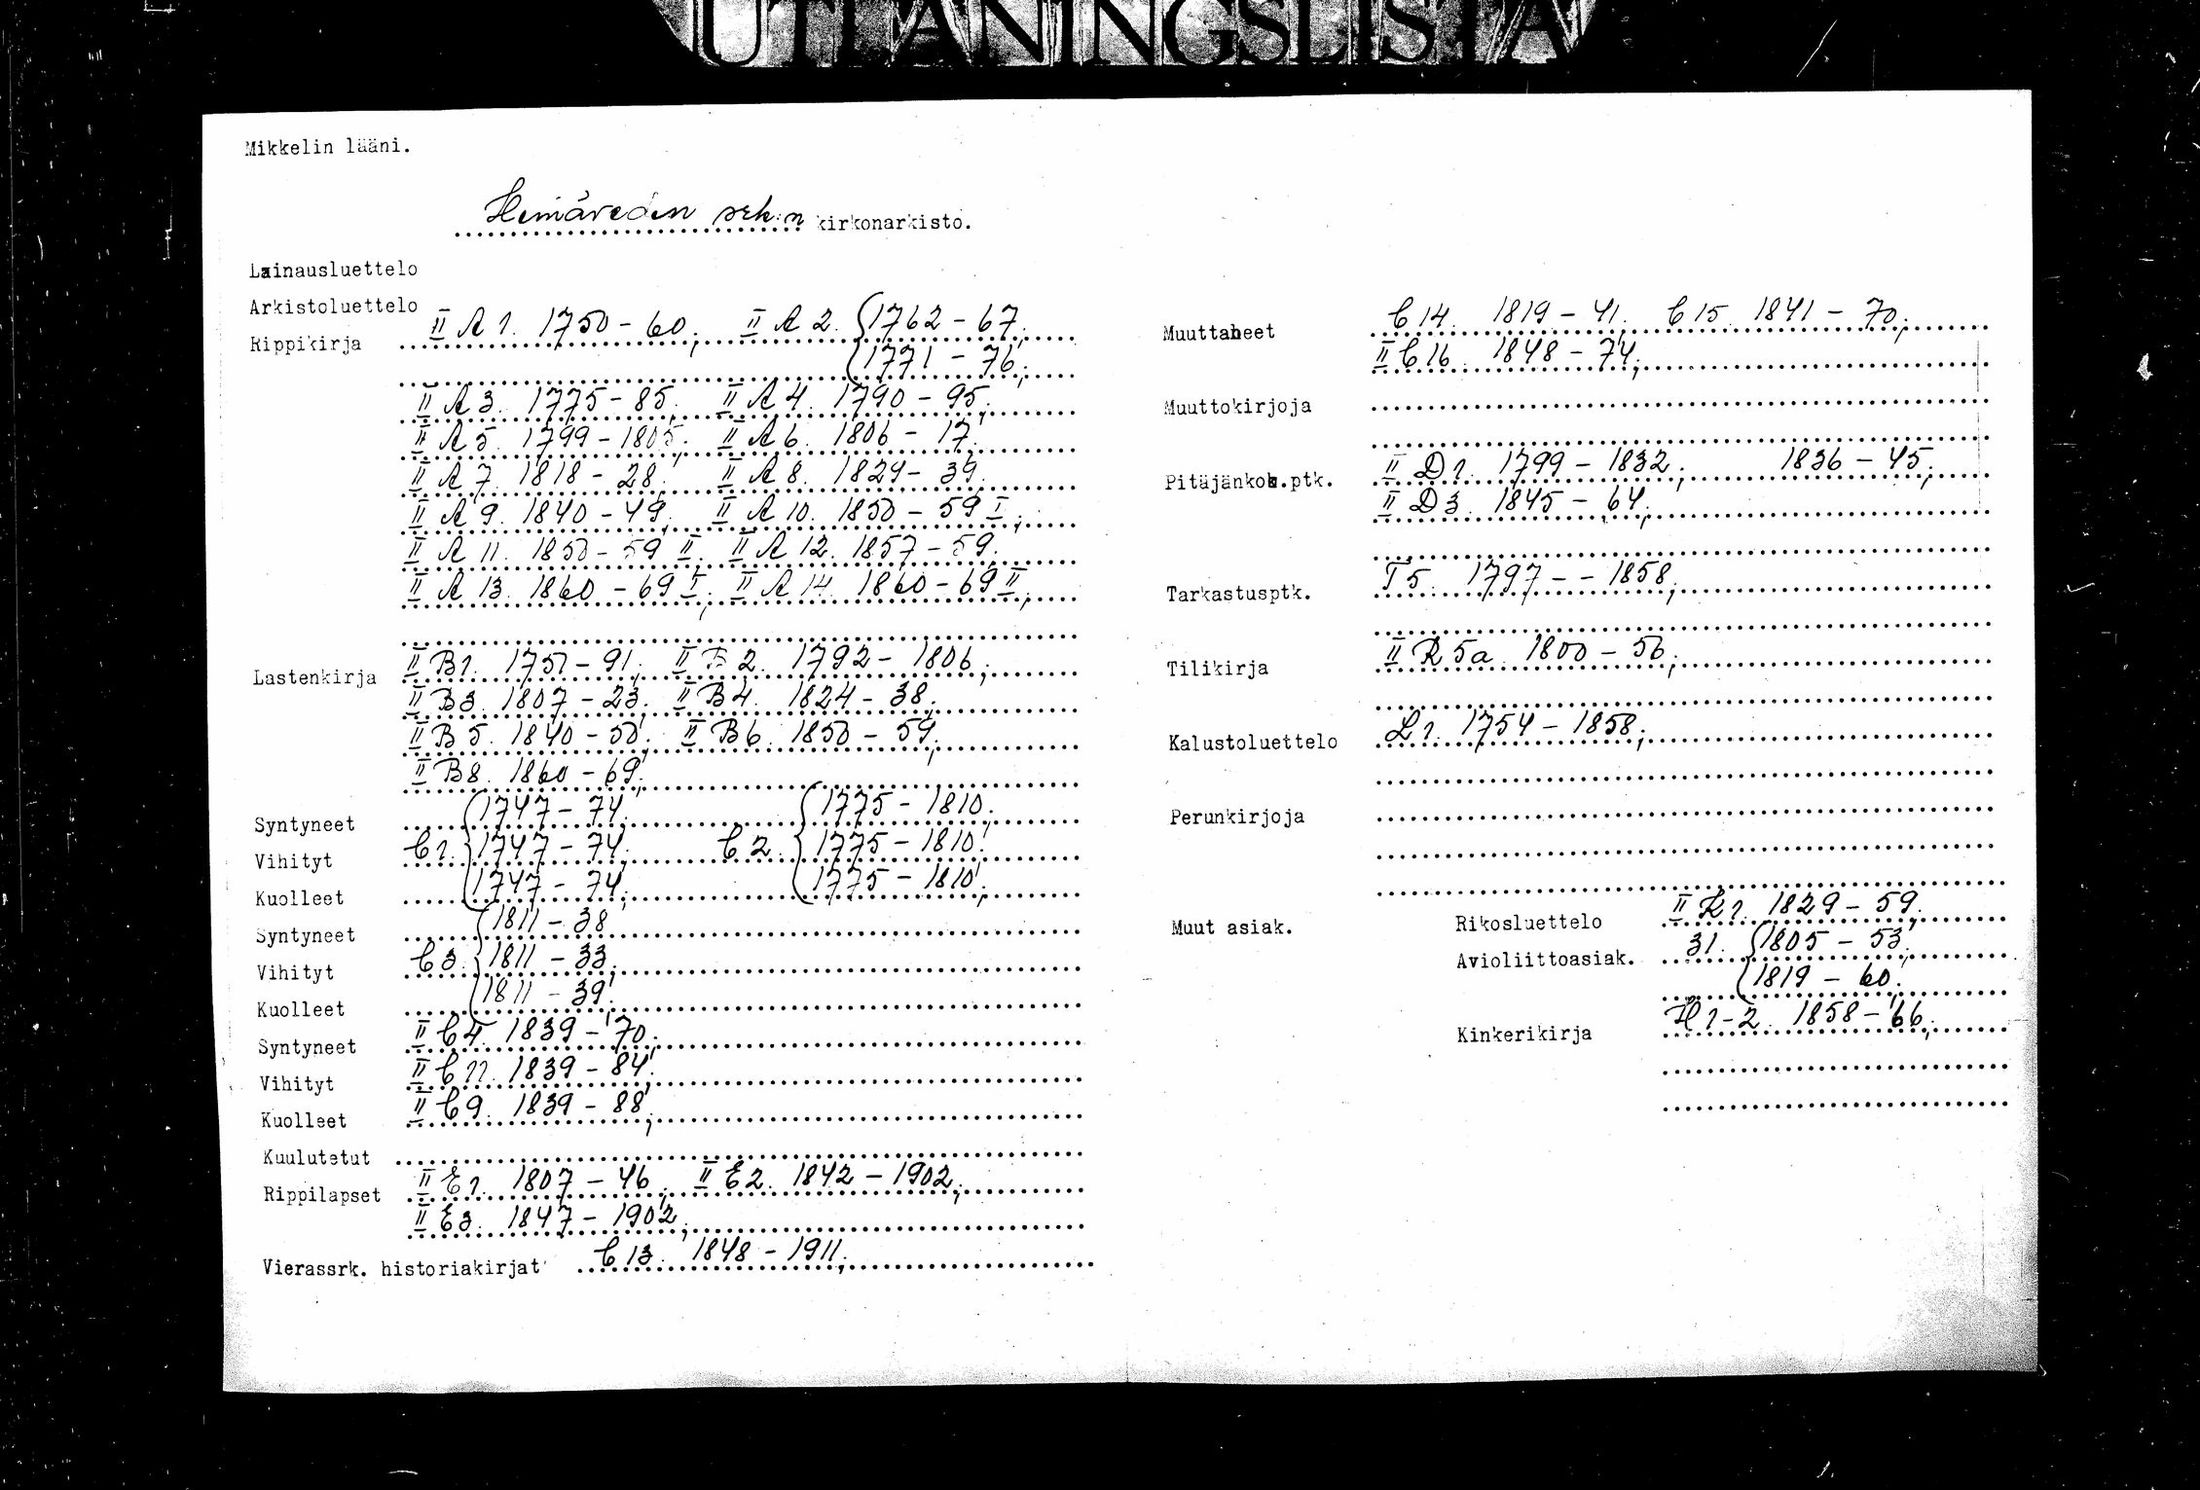 UTLÅNINGSLISTA
Mikkelin lääni.
Heinäveden srk:n kirkonarkisto.
Lainausluettelo
Arkistoluettelo
Rippikirja II A 1. 1750-60; II A 2. 1762-67;
1771-76;
II A 3. 1775-85; II A 4. 1790-95;
II A 5. 1799-1805; II A 6. 1806-17;
II A 7. 1818-28; II A 8. 1829-39;
II A 9. 1840-49; II A 10. 1850-59 I;
II A 11. 1850-59 II; II A 12. 1857-59;
II A 13. 1860-69 I; II A 14. 1860-69 II;
Lastenkirja II B 1. 1751-91; II B 2. 1792-1806;
II B 3. 1807-23; II B 4. 1824-38;
II B 5. 1840-50; II B 6. 1850-59;
II B 8. 1860-69;
Syntyneet 1747-74; 1775-1810;
Vihityt C 1. 1747-74; C 2. 1775-1810;
Kuolleet 1747-74; 1775-1810;
Syntyneet 1811-38
Vihityt C 3. 1811-33;
Kuolleet 1811-39;
Syntyneet II C 4. 1839-70;
Vihityt II C 11. 1839-84;
Kuolleet II C 9. 1839-88;
Kuulutetut
Rippilapset II E 1. 1807-46; II E 2. 1842-1902;
II E 3. 1847-1902;
Vierassrk. historiakirjat C 13. 1848-1911;
Muuttaneet C 14. 1819-41. C 15. 1841-70;
II C 16. 1848-74;
Muuttokirjoja
Pitäjänkok.ptk. II D 1. 1799-1832; 1836-45;
II D 3. 1845-64;
Tarkastusptk. T 5. 1797--1858;
Tilikirja II R 5a 1800-56;
Kalustoluettelo L 1. 1754-1858;
Perunkirjoja
Muut asiak. Rikosluettelo II K 1. 1829-59.
Avioliittoasiak. 31. 1805-53;
1819-60;
Kinkerikirja H 1-2. 1858-66;